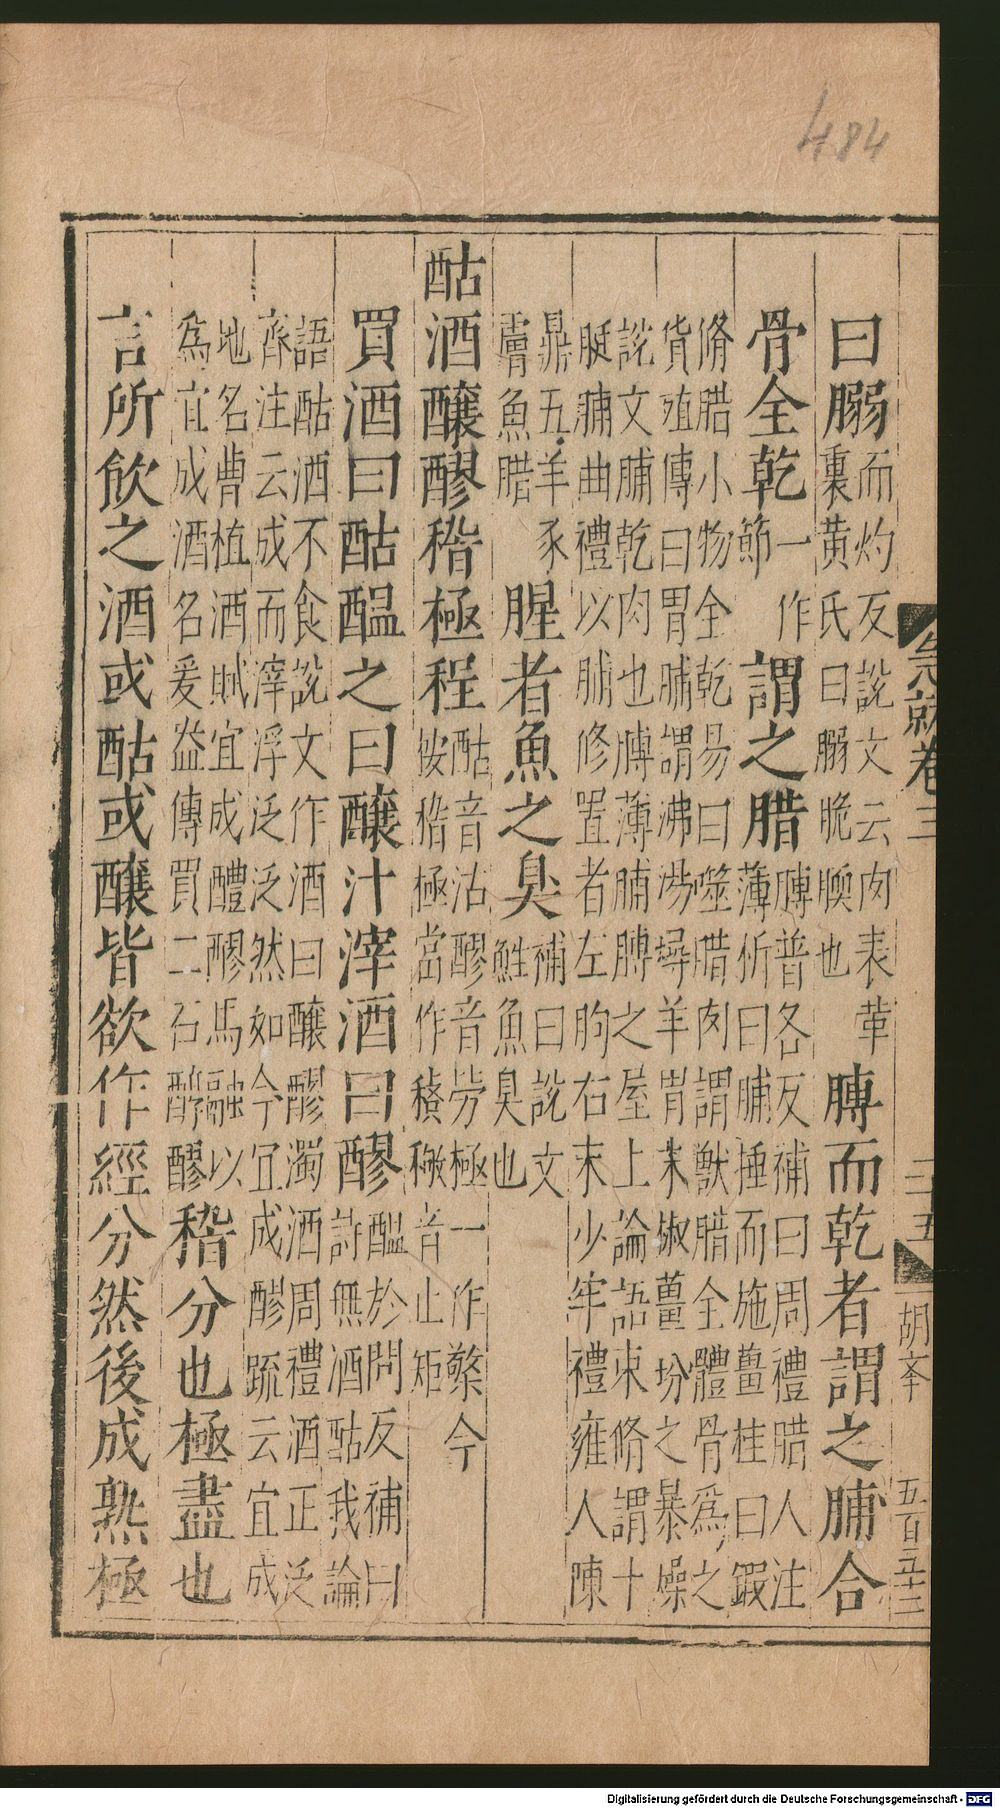 484
急就卷三
三五
五百五十二
曰䐞而灼反說文云肉表革
裏黄氏曰䐞脆腝也膊而乾者謂之脯合
骨全乾一作
節謂之腊膊普各反補曰周禮腊人注
薄析曰脯捶而施薑桂曰鍜
脩腊小物全乾易曰噬腊肉謂獸腊全體骨爲之
貨殖傳曰胃脯謂沸湯燖羊胃末椒薑坋之暴燥
說文脯乾肉也膊薄脯膊之屋上論語束脩謂十
脡䐁曲禮以脯修置者左朐右末少牢禮雍人陳
鼎五羊豕
膚魚腊腥者魚之臭補曰說文
鮏魚臭也
酤酒釀醪稽極程酤音沽醪音勞極一作檠今
按稽極當作𥡴𥠻音止矩
買酒曰酤醖之曰釀汁滓酒曰醪醖於問反補曰
詩無酒酤我論
語酤酒不食說文作酒曰釀醪濁酒周禮酒正泛
齊注云成而滓浮泛泛然如今宜成醪疏云宜成
地名曹植酒賦宜成醴醪馬融以
爲宜成酒名爰盎傳買二石醇醪稽分也極盡也
言所飲之酒或酤或釀皆欲作經分然後成熟極
Digitalisierung gefördert durch die Deutsche Forschungsgemeinschaft - DFG